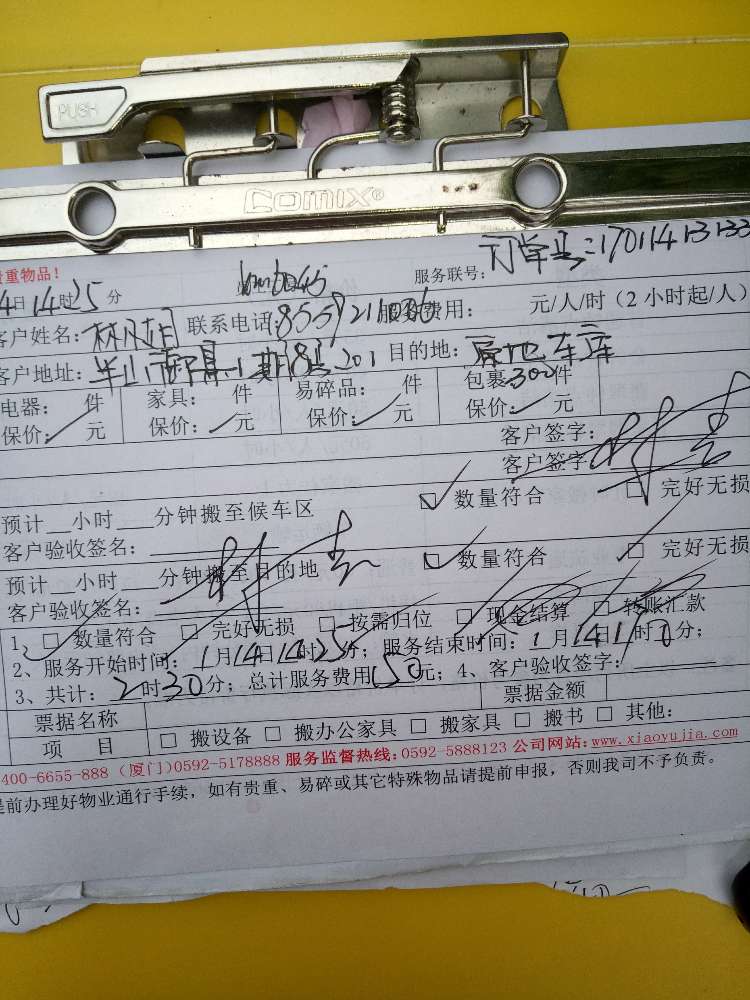 PUSH
COMIX®
贵重物品！ 服务联号： 订单号：17011413133
4日14时25分
客户姓名： 联系电话： 服务费用： 元/人/时（2小时起/人）
客户地址： 201 目的地：原地车库
电器： 件 家具： 件 易碎品： 件 包裹：300件
保价： 元 保价： 元 保价： 元 保价： 元
客户签字：
客户签字：
预计__小时___分钟搬至候车区 数量符合 完好无损
客户验收签名：
预计__小时___分钟搬至目的地 数量符合 完好无损
客户验收签名：
1、 数量符合 完好无损 按需归位 现金结算 转账汇款
2、服务开始时间：1月14日14时25分；服务结束时间：1月14日 时 分；
3、共计：2时30分；总计服务费用150元；4、客户验收签字：
票据名称 票据金额
项 目 □ 搬设备 □ 搬办公家具 □ 搬家具 □ 搬书 □ 其他：
400-6655-888 (厦门)0592-5178888 服务监督热线：0592-5888123 公司网站：www.xiaoyujia.com
提前办理好物业通行手续，如有贵重、易碎或其它特殊物品请提前申报，否则我司不予负责。